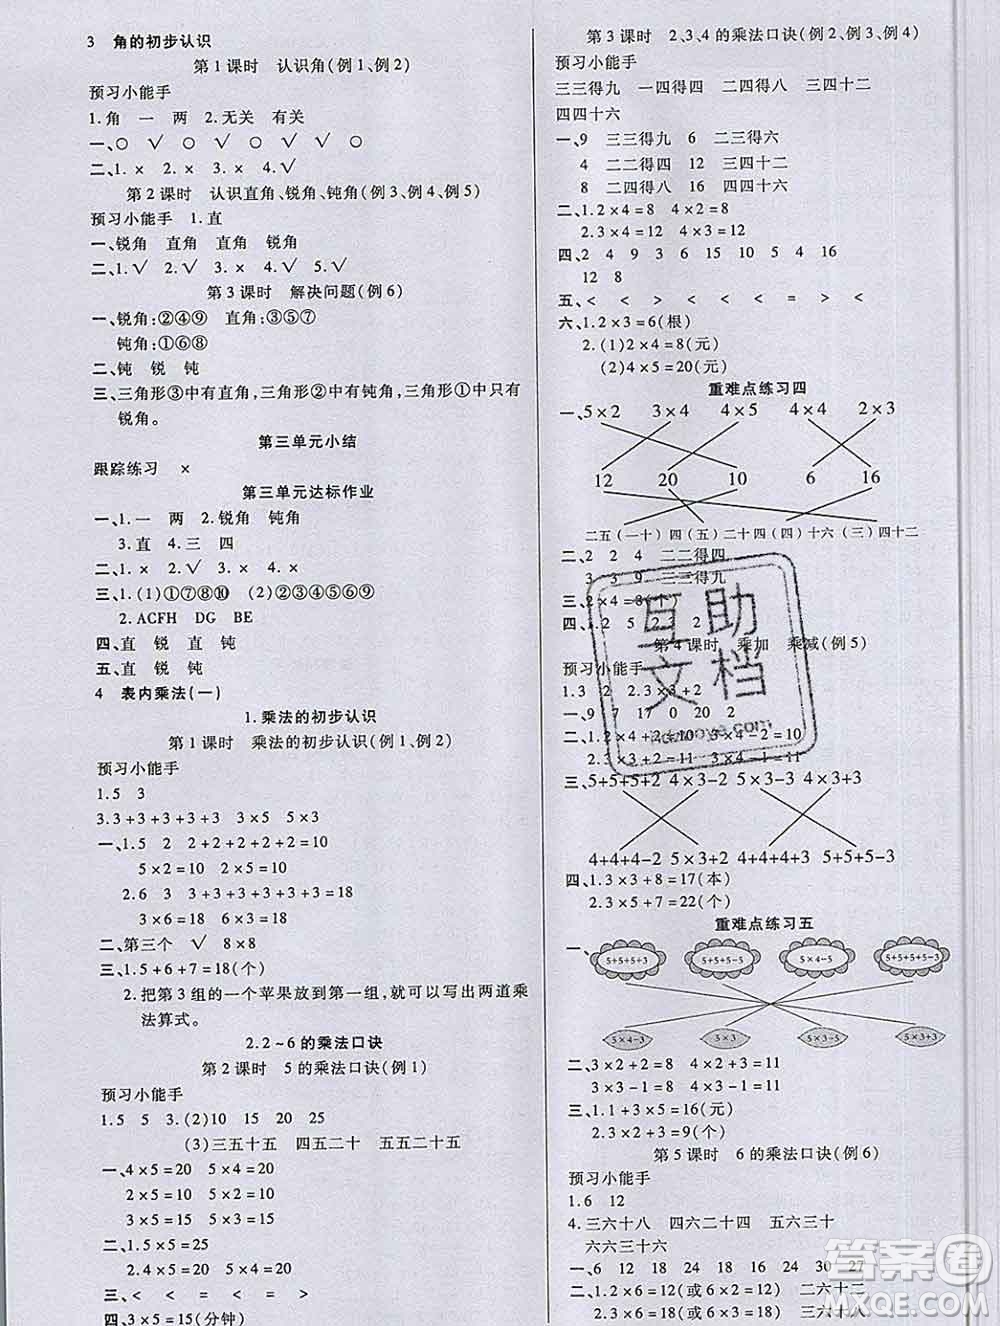 3 角的初步认识
第1课时 认识角(例1、例2)
预习小能手
1.角 一 两 2.无关 有关
一、○ √ ○ √ √ √ ○
二、1.× 2.× 3.× 4.√
第2课时 认识直角、锐角、钝角(例3、例4、例5)
预习小能手 1.直
一、锐角 直角 直角 锐角
二、1.√ 2.√ 3.× 4.× 5.√
第3课时 解决问题(例6)
一、锐角:②④⑨ 直角:③⑤⑦
钝角:①⑥⑧
二、钝 锐 钝
三、三角形③中有直角,三角形②中有钝角,三角形①中只有
锐角。
第三单元小结
跟踪练习 ×
第三单元达标作业
一、1.一 两 2.锐角 钝角
3.直 4.三 四
二、1.× 2.√ 3.× 4.√ 5.×
三、1.(1)①⑦⑧⑩ (2)②③④⑤⑥⑨
2.ACFH DG BE
四、直 锐 直 钝
五、直 钝 锐 钝
4 表内乘法(一)
1.乘法的初步认识
第1课时 乘法的初步认识(例1、例2)
预习小能手
1.5 3
3.3+3+3+3+3 3×5 5×3
一、1.5 2 2+2+2+2+2=10
5×2=10 2×5=10
2.6 3 3+3+3+3+3+3=18
3×6=18 6×3=18
二、第三个 √ 8×8
三、1.5+6+7=18(个)
2.把第3组的一个苹果放到第一组,就可以写出两道乘
法算式。
2.2~6的乘法口诀
第2课时 5的乘法口诀(例1)
预习小能手
1.5 5 3.(2)10 15 20 25
(3)三五十五 四五二十 五五二十五
一、4×5=20 5×4=20
2×5=10 5×2=10
3×5=15 5×3=15
二、1.5×5=25
2.4×5=20 5×4=20
三、< = < < = >
四、3×5=15(分钟)
第3课时 2、3、4的乘法口诀(例2、例3、例4)
预习小能手
三三得九 一四得四 二四得八 三四十二
四四十六
一、9 三三得九 6 二三得六
4 二二得四 12 三四十二
8 二四得八 16 四四十六
二、1.2×4=8 4×2=8
2.3×4=12 4×3=12
四、2 4 9 3 6 15 10 5 15 16
12 8
五、< < > < < < = > <
六、1.2×3=6(根)
2.(1)2×4=8(元)
(2)4×5=20(元)
重难点练习四
一、5×2 3×4 4×5 4×4 2×3
12 20 10 6 16
二五(一十) 四(五)二十 四(四)十六 (三)四十二
二、2 2 4 二二得四
3 3 9 三三得九
三、2×4=8(个)
四、1.2 5 2.2 2
第4课时 乘加 乘减(例5)
预习小能手
1.3 2 2.3×3+2
一、9 7 17 0 20 2
二、1.2×4+2=10 3×4-2=10
2.3×3+2=11 3×4-1=11
三、5+5+5 4×3-2 5×3-5 4×3+3
4+4+4-2 5×3+2 4+4+4+3 5+5+5-3
四、1.3×3+8=17(本)
2.3×5+7=22(个)
重难点练习五
一、5+5+5+3 5+5+5-5 5×4-5 5+5+5+5-3
5×4-3 5×3 5×3-5 5×3+3
二、3×2+2=8 2×4+3=11
3×3-1=8 4×3-1=11
三、1.1+3×5=16(元)
2.3×2+3=9(个)
第5课时 6的乘法口诀(例6)
预习小能手
1.6 12
4.三六十八 四六二十四 五六三十
六六三十六
一、6 12 18 24 18 16 24 30 27
二、1.2×6=12(或6×2=12) 二六十二
2.3×6=18(或6×3=18) 三六十八
互助
文档
答案圈
MXQE.COM